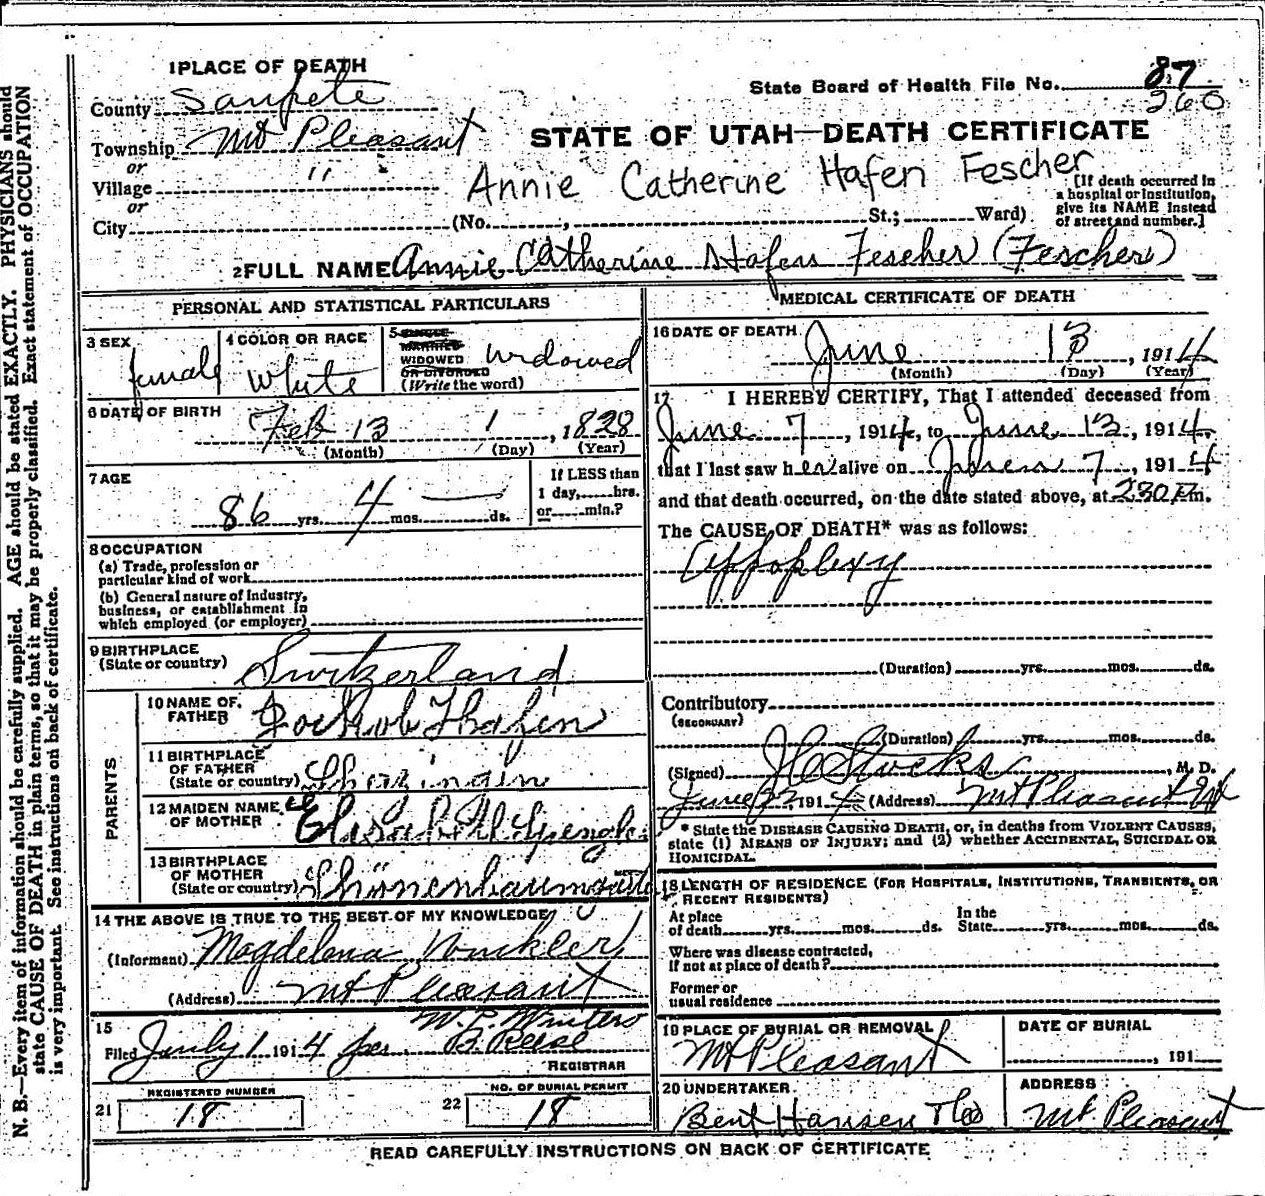 N. B.—Every item of information should be carefully supplied. AGE should be stated EXACTLY. PHYSICIANS should
state CAUSE OF DEATH in plain terms, so that it may be properly classified. Exact statement of OCCUPATION
is very important. See instructions on back of certificate.
1 PLACE OF DEATH
County Sanpete
Township Mt Pleasant
or
Village " "
or
City
State Board of Health File No. 87
260
STATE OF UTAH—DEATH CERTIFICATE
Annie Catherine Hafen Fescher
(No. , St.; Ward)
[If death occurred in
a hospital or institution,
give its NAME instead
of street and number.]
2 FULL NAME Annie Catherine Hafen Fescher (Fescher)
PERSONAL AND STATISTICAL PARTICULARS
3 SEX
female
4 COLOR OR RACE
White
5 SINGLE
MARRIED
WIDOWED
OR DIVORCED
(Write the word)
widowed
6 DATE OF BIRTH
Feb 13 1, 1828
(Month) (Day) (Year)
7 AGE
86 yrs. 4 mos. — ds.
If LESS than
1 day, hrs.
or min.?
8 OCCUPATION
(a) Trade, profession or
particular kind of work
(b) General nature of industry,
business, or establishment in
which employed (or employer)
9 BIRTHPLACE
(State or country) Switzerland
PARENTS
10 NAME OF
FATHER
11 BIRTHPLACE
OF FATHER
(State or country)
12 MAIDEN NAME
OF MOTHER
13 BIRTHPLACE
OF MOTHER
(State or country)
14 THE ABOVE IS TRUE TO THE BEST OF MY KNOWLEDGE
(Informant) Magdelena Winkler
(Address) Mt Pleasant
15
Filed July 1 1914 per W. P. Winters
B. Reese
REGISTRAR
REGISTERED NUMBER
21 18
NO. OF BURIAL PERMIT
22 18
MEDICAL CERTIFICATE OF DEATH
16 DATE OF DEATH
June 13, 1914
(Month) (Day) (Year)
17 I HEREBY CERTIFY, That I attended deceased from
June 7, 1914, to June 13, 1914,
that I last saw her alive on 7, 1914
and that death occurred, on the date stated above, at 230 P.m.
The CAUSE OF DEATH* was as follows:
Appoplexy
(Duration) yrs. mos. ds.
Contributory
(SECONDARY)
(Duration) yrs. mos. ds.
(Signed) , M. D.
June 22 1914 (Address) Mt Pleasant Ut
* State the DISEASE CAUSING DEATH, or, in deaths from VIOLENT CAUSES,
state (1) MEANS OF INJURY; and (2) whether ACCIDENTAL, SUICIDAL OR
HOMICIDAL.
18 LENGTH OF RESIDENCE (FOR HOSPITALS, INSTITUTIONS, TRANSIENTS, OR
RECENT RESIDENTS)
At place
of death yrs. mos. ds.
In the
State yrs. mos. ds.
Where was disease contracted,
if not at place of death?
Former or
usual residence
19 PLACE OF BURIAL OR REMOVAL
Mt Pleasant
DATE OF BURIAL
, 191
20 UNDERTAKER
Bent Hansen
ADDRESS
Mt. Pleasant
READ CAREFULLY INSTRUCTIONS ON BACK OF CERTIFICATE